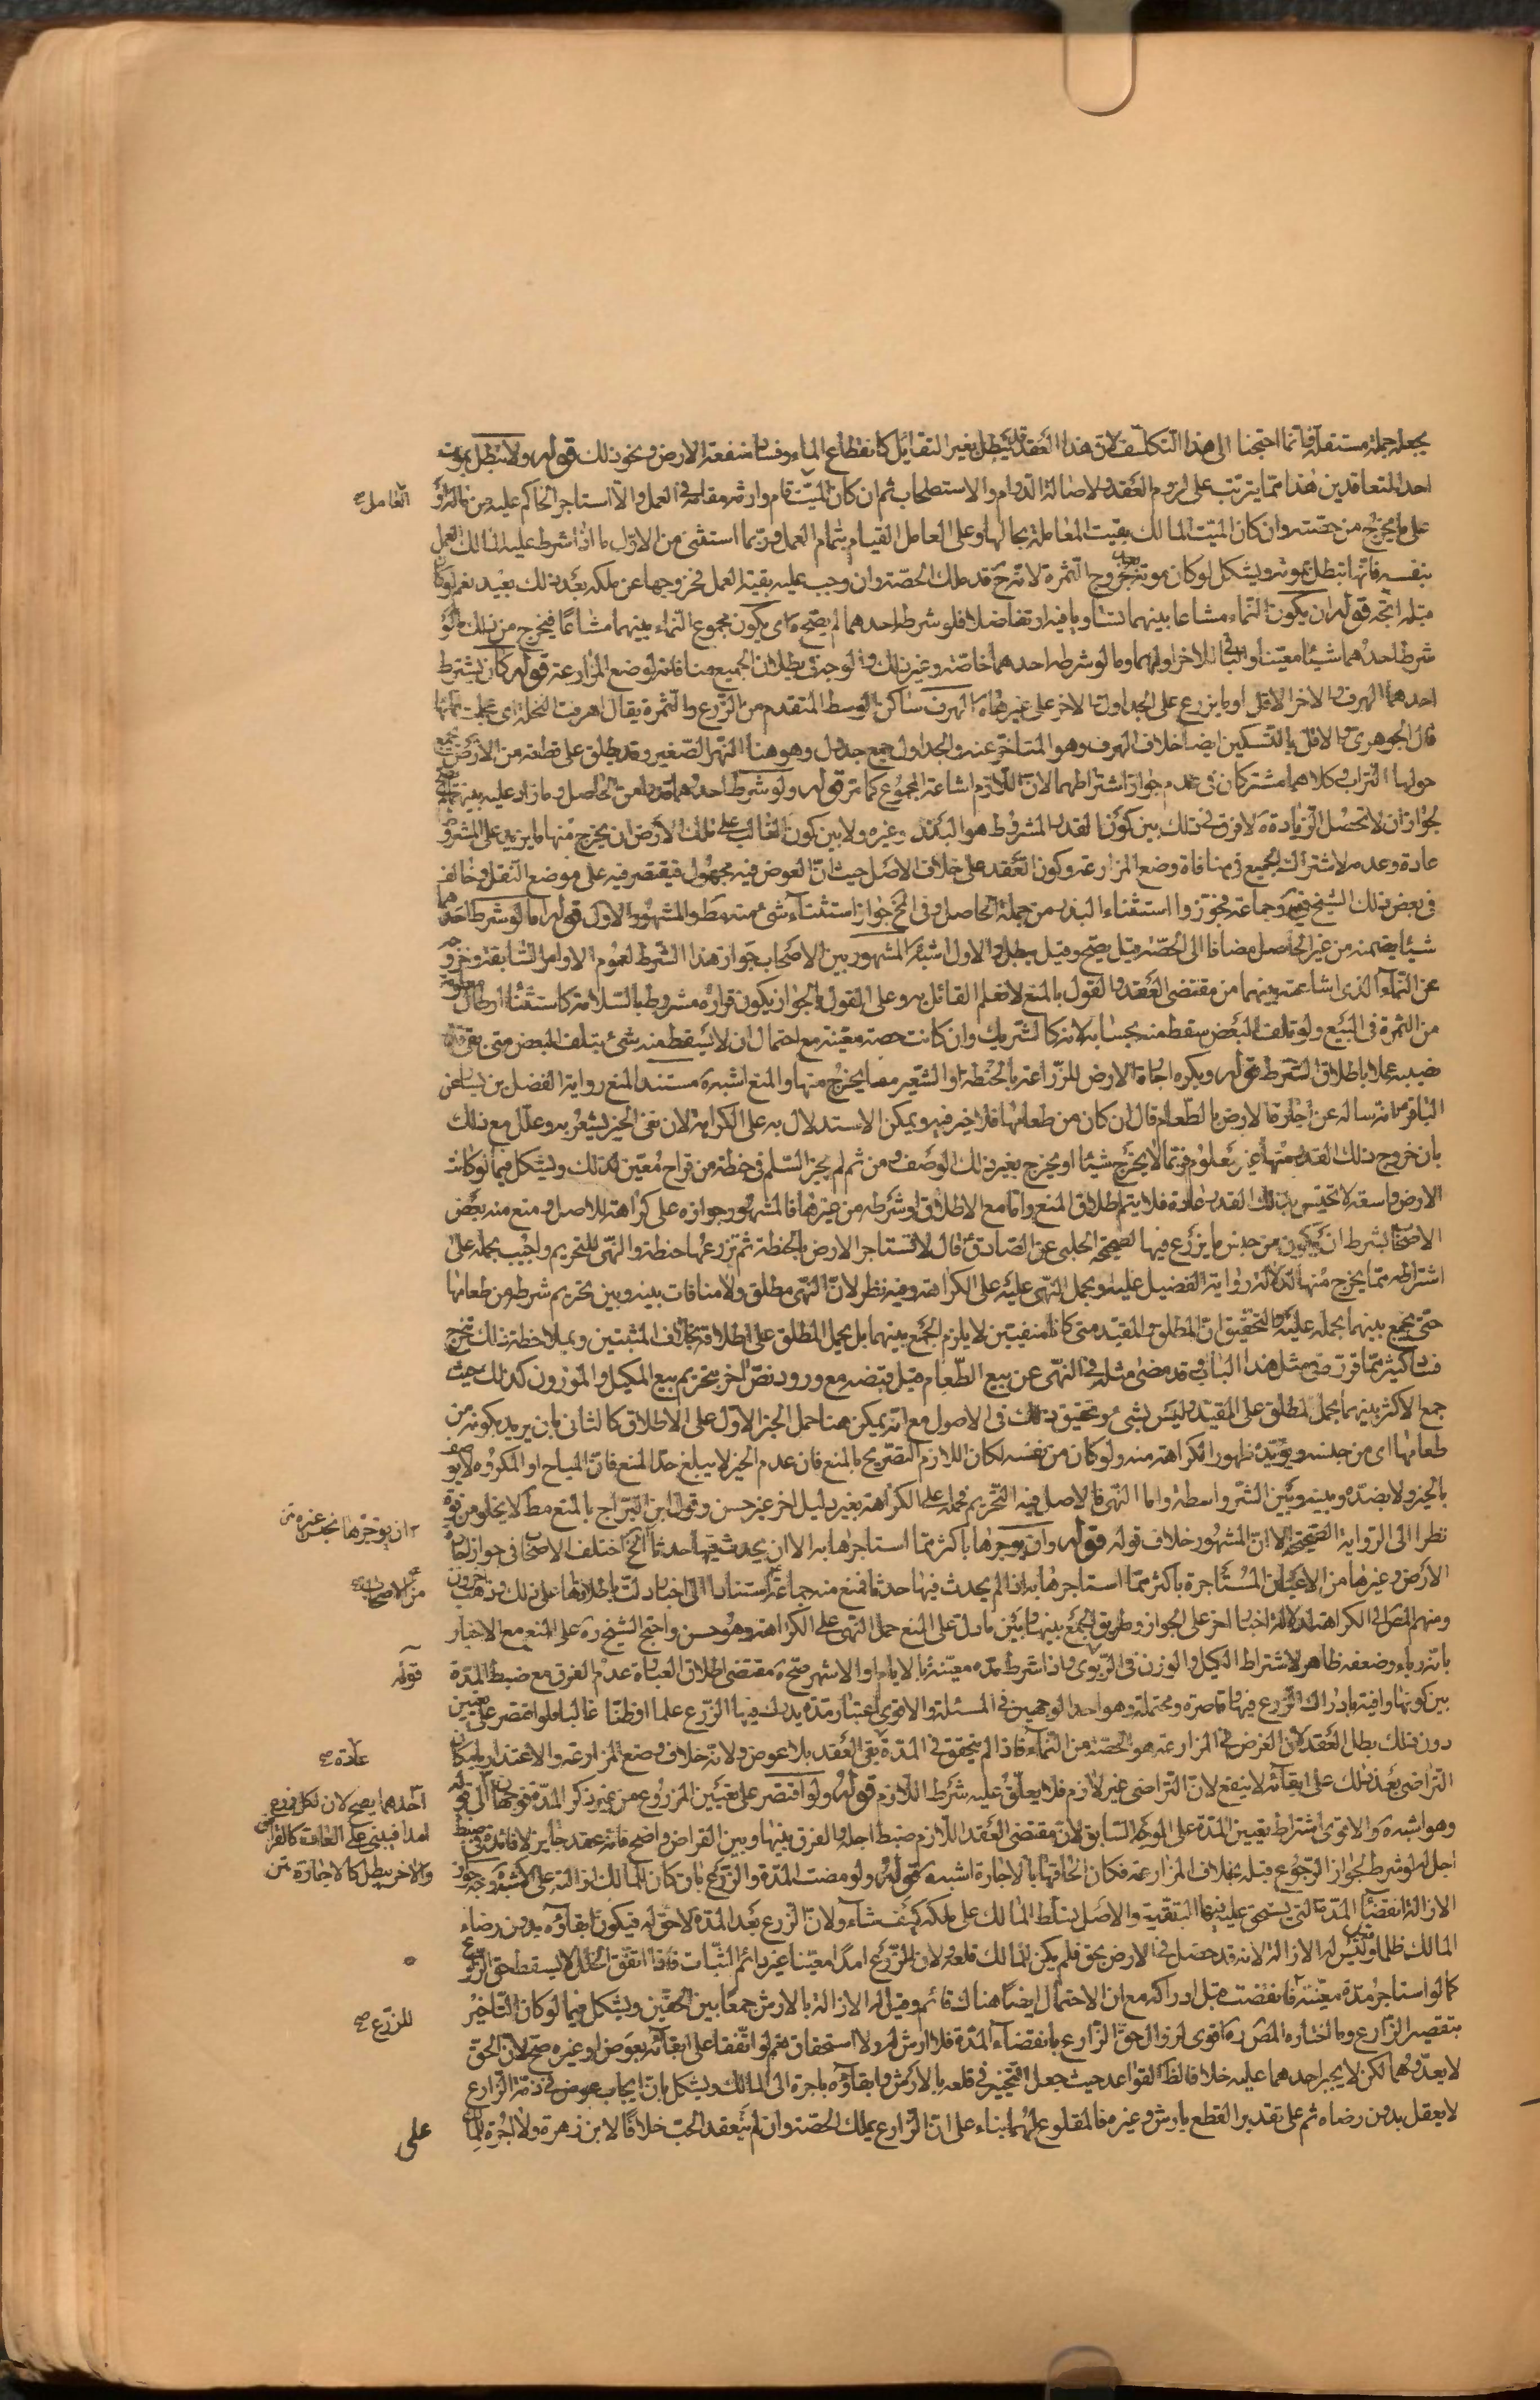 يجعله جملة مستقلة فانما احتجنا الى هذا التكلف لان هذا العقد قد يبطل بغير التقايل كانقطاع الماء وفساد منفعة الارض ونحو ذلك قوله ولا تبطل بموت
احد المتعاقدين هذا مما يترتب على لزوم العقد ولاصالة الدوام والاستصحاب ثم ان كان الميت العامل قام وارثه مقامه في العمل والا استاجر الحاكم عليه من ماله او
على ما يخرج من حصته وان كان الميت المالك بقيت المعاملة بحالها وعلى العامل القيام بتمام العمل وربما استثنى من الاول ما اذا شرط عليه المالك العمل
بنفسه فانها تبطل بموته ويشكل لو كان موته بعد خروج الثمرة لانه ح قد ملك الحصة وان وجب عليه بقية العمل فخروجها عن ملكه بعد ذلك بعيد نعم لو كان
قبله اتجه قوله ان يكون النماء مشاعا بينهما تساويا فيه او تفاضلا فلو شرط احدهما لم يصح ه اى يكون مجموع النماء بينهما مشاعا فيخرج من ذلك ما لو
شرط احدهما شيئا معينا والباقى للاخر او لهما وما لو شرطه احدهما خاصة وغير ذلك والوجه فى بطلان الجميع منافاته لوضع المزارعة قوله كان يشترط
احدهما الهرف والاخر الافل او ما يزرع على الجداول والاخر على غيرها ه الهرف ساكن الوسط المتقدم من الزرع والثمرة يقال اهرفت النخلة اى عجلت ثمرتها
قال الجوهرى والافل بالتسكين ايضا خلاف الهرف وهو المتاخر عنه والجداول جمع جدول وهو هنا النهر الصغير وقد يطلق على قطعة من الارض يجمع
حولها التراب وكلاهما مشتركان فى عدم جواز اشتراطهما لان اللازم اشاعة المجموع كما مر قوله ولو شرط احدهما قدرا من الحاصل وما زاد عليه بينهما لم يصح
لجواز ان لا تحصل الزيادة ه لا فرق فى ذلك بين كون القدر المشروط هو البذر وغيره ولا بين كون الغالب على تلك الارض ان يخرج منها ما يزيد على المشروط
عادة وعدمه لاشتراك الجميع فى منافاة وضع المزارعة وكون العقد على خلاف الاصل حيث ان العوض فيه مجهول فيقتصر فيه على موضع النقل وخالف
فى بعض ذلك الشيخ وجماعة فجوزوا استثناء البذر من جملة الحاصل وفى المخ جواز استثناء شئ منه مط والمشهور الاول قوله اما لو شرط احدهما
شيئا يضمنه من غير الحاصل مضافا الى الحصة قيل يصح وقيل يبطل والاول اشبه ه المشهور بين الاصحاب جواز هذا الشرط لعموم الاوامر السابقة وخروجه
عن النماء الذى اشاعته بينهما من مقتضى العقد والقول بالمنع لا نعلم القائل به وعلى القول بالجواز يكون قراره مشروطا بالسلامة كاستثناء ارطال معلومة
من الثمرة فى البيع ولو تلف البعض سقط منه بحسابه لانه كالشريك وان كانت حصته معينة مع احتمال ان لا يسقط منه شئ بتلف البعض متى بقى قدر
نصيبه عملا باطلاق الشرط قوله ويكره اجارة الارض للزراعة بالحنطة او الشعير مما يخرج منها والمنع اشبه ه مستند المنع رواية الفضل بن يسار عن
الباقر ع انه ساله عن اجارة الارض بالطعام قال ان كان من طعامها فلا خير فيه ويمكن الاستدلال به على الكراهة لان نفى الخير يشعر به وعلل مع ذلك
بان خروج ذلك القدر منها غير معلوم فربما لا يخرج شيئا او يخرج بغير ذلك الوصف ومن ثم لم يجز السلم فى حنطة من قراح معين لذلك ويشكل فيما لو كانت
الارض واسعة لا تخيس بذلك القدر عادة فلا يتم اطلاق المنع واما مع الاطلاق او شرطه من غيرها فالمشهور جوازه على كراهة للاصل ومنع منه بعض
الاصحاب بشرط ان يكون من جنس ما يزرع فيها لصحيحة الحلبى عن الصادق ع قال لا تستاجر الارض بالحنطة ثم تزرعها حنطة والنهى للتحريم واجيب بحمله على
اشتراطه مما يخرج منها لدلالة رواية الفضيل عليه ويحمل النهى عليه على الكراهة وفيه نظر لان النهى مطلق ولا منافات بينه وبين تحريم شرطه من طعامها
حتى يجمع بينهما بحمله عليه والتحقيق ان المطلق والمقيد متى كانا منفيين لا يلزم الجمع بينهما بل يحمل المطلق على اطلاقه بخلاف المثبتين وبملاحظة ذلك يتخرج
فساد كثير مما قرر فى مثل هذا الباب وقد مضى مثله فى النهى عن بيع الطعام قبل قبضه مع ورود نص اخر بتحريم بيع المكيل والموزون كذلك حيث
جمع الاكثر بينهما بحمل المطلق على المقيد وليس بشئ وتحقيق ذلك فى الاصول مع انه يمكن هنا حمل الخبر الاول على الاطلاق كالثانى بان يريد بكونه من
طعامها اى من جنسه ويؤيده ظهور الكراهة منه ولو كان من نفسه لكان اللازم التصريح بالمنع فان عدم الخير لا يبلغ حد المنع فان المباح او المكروه لا يوصف
بالخير ولا بضده وبينه وبين الشر واسطة واما النهى فالاصل فيه التحريم فحمله على الكراهة بغير دليل اخر غير حسن وقول ابن البراج بالمنع مط لا يخلو من قوة
نظرا الى الرواية الصحيحة الا ان المشهور خلاف قوله قوله وان يوجرها باكثر مما استاجرها به الا ان يحدث فيها حدثا الخ اختلف الاصحاب فى جواز اجارة
الارض وغيرها من الاعيان المستاجرة باكثر مما استاجرها به اذا لم يحدث فيها حدثا فمنع منه جماعة استنادا الى اخبار دلت باطلاقها على ذلك وذهب اخرون
ومنهم المص الى الكراهة لدلالة اخبار اخر على الجواز وطريق الجمع بينها وبين ما دل على المنع حمل النهى على الكراهة وهو حسن واحتج الشيخ ره على المنع مع الاخبار
بانه رباء وضعفه ظاهر لاشتراط الكيل والوزن فى الربوى واذا شرط مدة معينة بالايام او الاشهر صح ه مقتضى اطلاق العبارة عدم الفرق مع ضبط المدة
بين كونها وافية بادراك الزرع فيها وقاصرة ومحتملة وهو احد الوجهين فى المسئلة والاقوى اعتبار مدة يدرك فيها الزرع علما او ظنا غالبا فلو اقتصر على تعيين
دون ذلك بطل العقد لان الغرض فى المزارعة هو الحصة من النماء فاذا لم يتحقق فى المدة بقى العقد بلا عوض ولانه خلاف وضع المزارعة والاعتذار بامكان
التراضى بعد ذلك على ابقائه لا ينفع لان التراضى غير لازم فلا يعلق عليه شرط اللازم قوله ولو اقتصر على تعيين المزروع من غير ذكر المدة فوجهان الى قوله
وهو اشبه ه والاقوى اشتراط تعيين المدة على الوجه السابق لان مقتضى العقد اللازم ضبط اجله والفرق بينها وبين القراض واضح فانه عقد جايز لا فائدة فى ضبط
اجل له لو شرط لجواز الرجوع قبله بخلاف المزارعة فكان الحاقها بالاجارة اشبه قوله ولو مضت المدة والزرع باق كان للمالك ازالته على الاشبه ه وجه جواز
الازالة انقضاء المدة التى يستحق عليه فيها التبقية والاصل تسلط المالك على ملكه كيف شاء ولان الزرع بعد المدة لا حق له فيكون ابقاؤه بدون رضاء
المالك ظلما وقيل ليس له الازالة لانه قد حصل فى الارض بحق فلم يكن للمالك قلعه ولان للزرع امدا معينا غير دائم الثبات فاذا اتفق الخلل لا يسقط حق الزرع
كما لو استاجر مدة معينة فانقضت قبل ادراكه مع ان الاحتمال ايضا هناك قائم وقيل له الازالة بالارش جمعا بين الحقين ويشكل فيما لو كان التاخير
بتقصير الزارع وما اختاره المص ره اقوى لزوال حق الزارع بانقضاء المدة فلا ارش له ولا استحقاق نعم لو اتفقا على ابقائه بعوض او غيره صح لان الحق
لا يعدوهما لكن لا يجبر احدهما عليه خلافا لظ القواعد حيث جعل التخيير فى قلعه بالارش وابقاؤه باجرة الى المالك ويشكل بان ايجاب عوض فى ذمة الزارع
لا يعقل بدون رضاه ثم على تقدير القطع بارش وغيره فالمقلوع لهما بناء على ان الزارع يملك الحصة وان لم ينعقد الحب خلافا لابن زهرة ولا اجرة للمالك
العامل صح
ان يؤجرها بجنس غيره
من الاصحاب صح
قوله
عادة صح
احدهما يصح لان لكل زرع
امدا فيبنى على العادة كالقراض
والاخر يبطل كالاجارة
للزرع صح
على